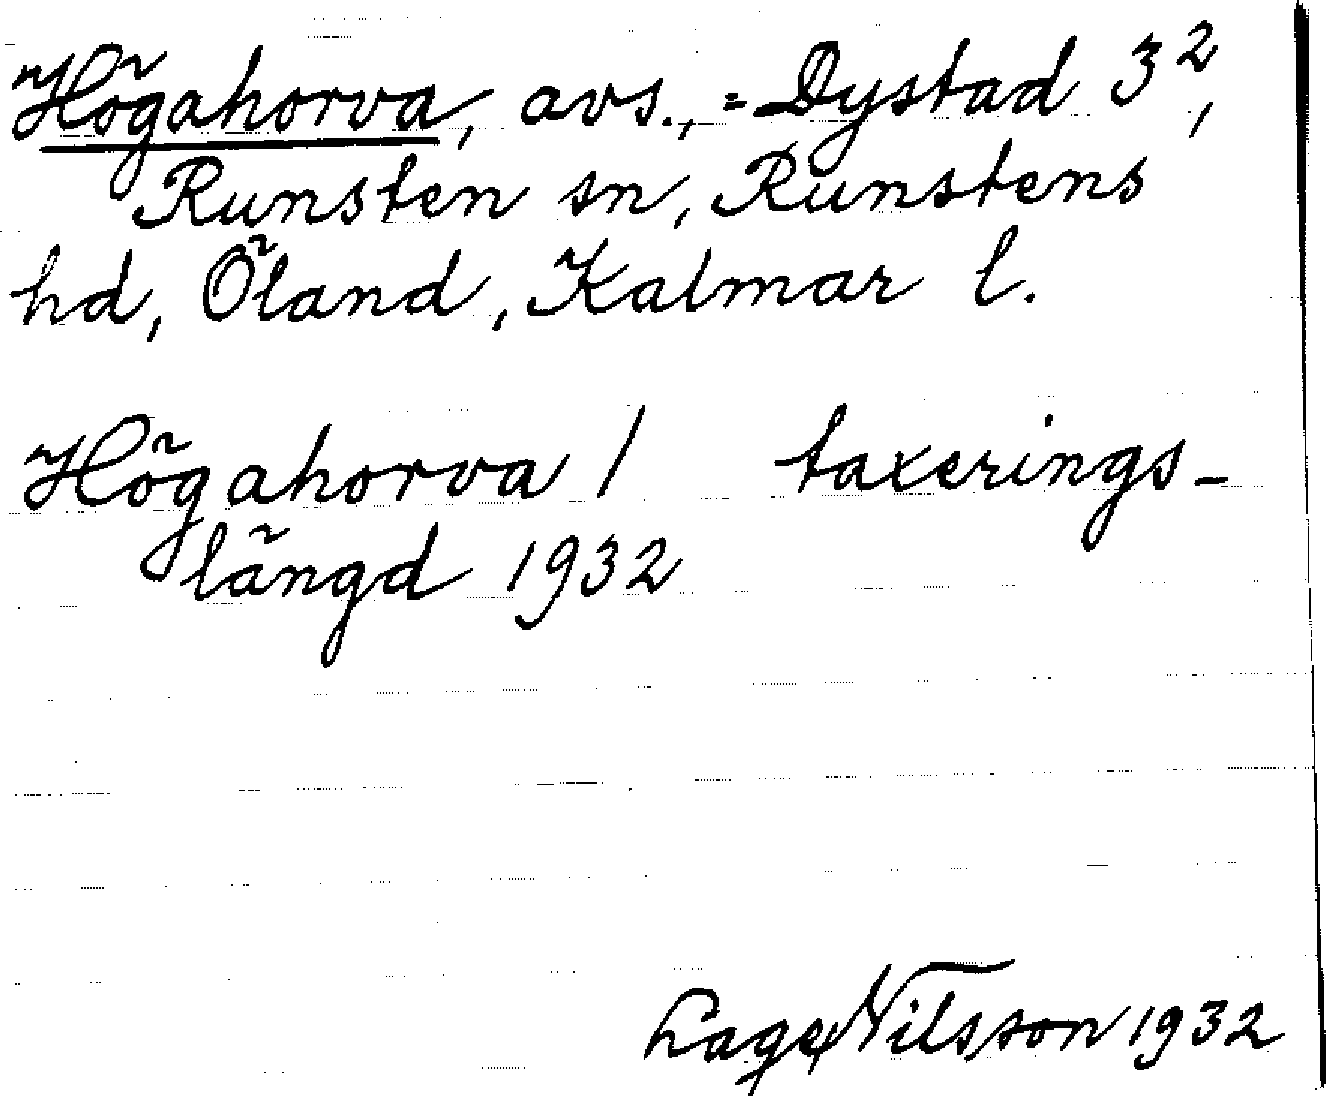 Högahorva, avs., = Dystad 3²,
Runsten sn, Runstens
hd, Öland, Kalmar l.
Högahorva / taxerings-
längd 1932
Lage Nilsson 1932